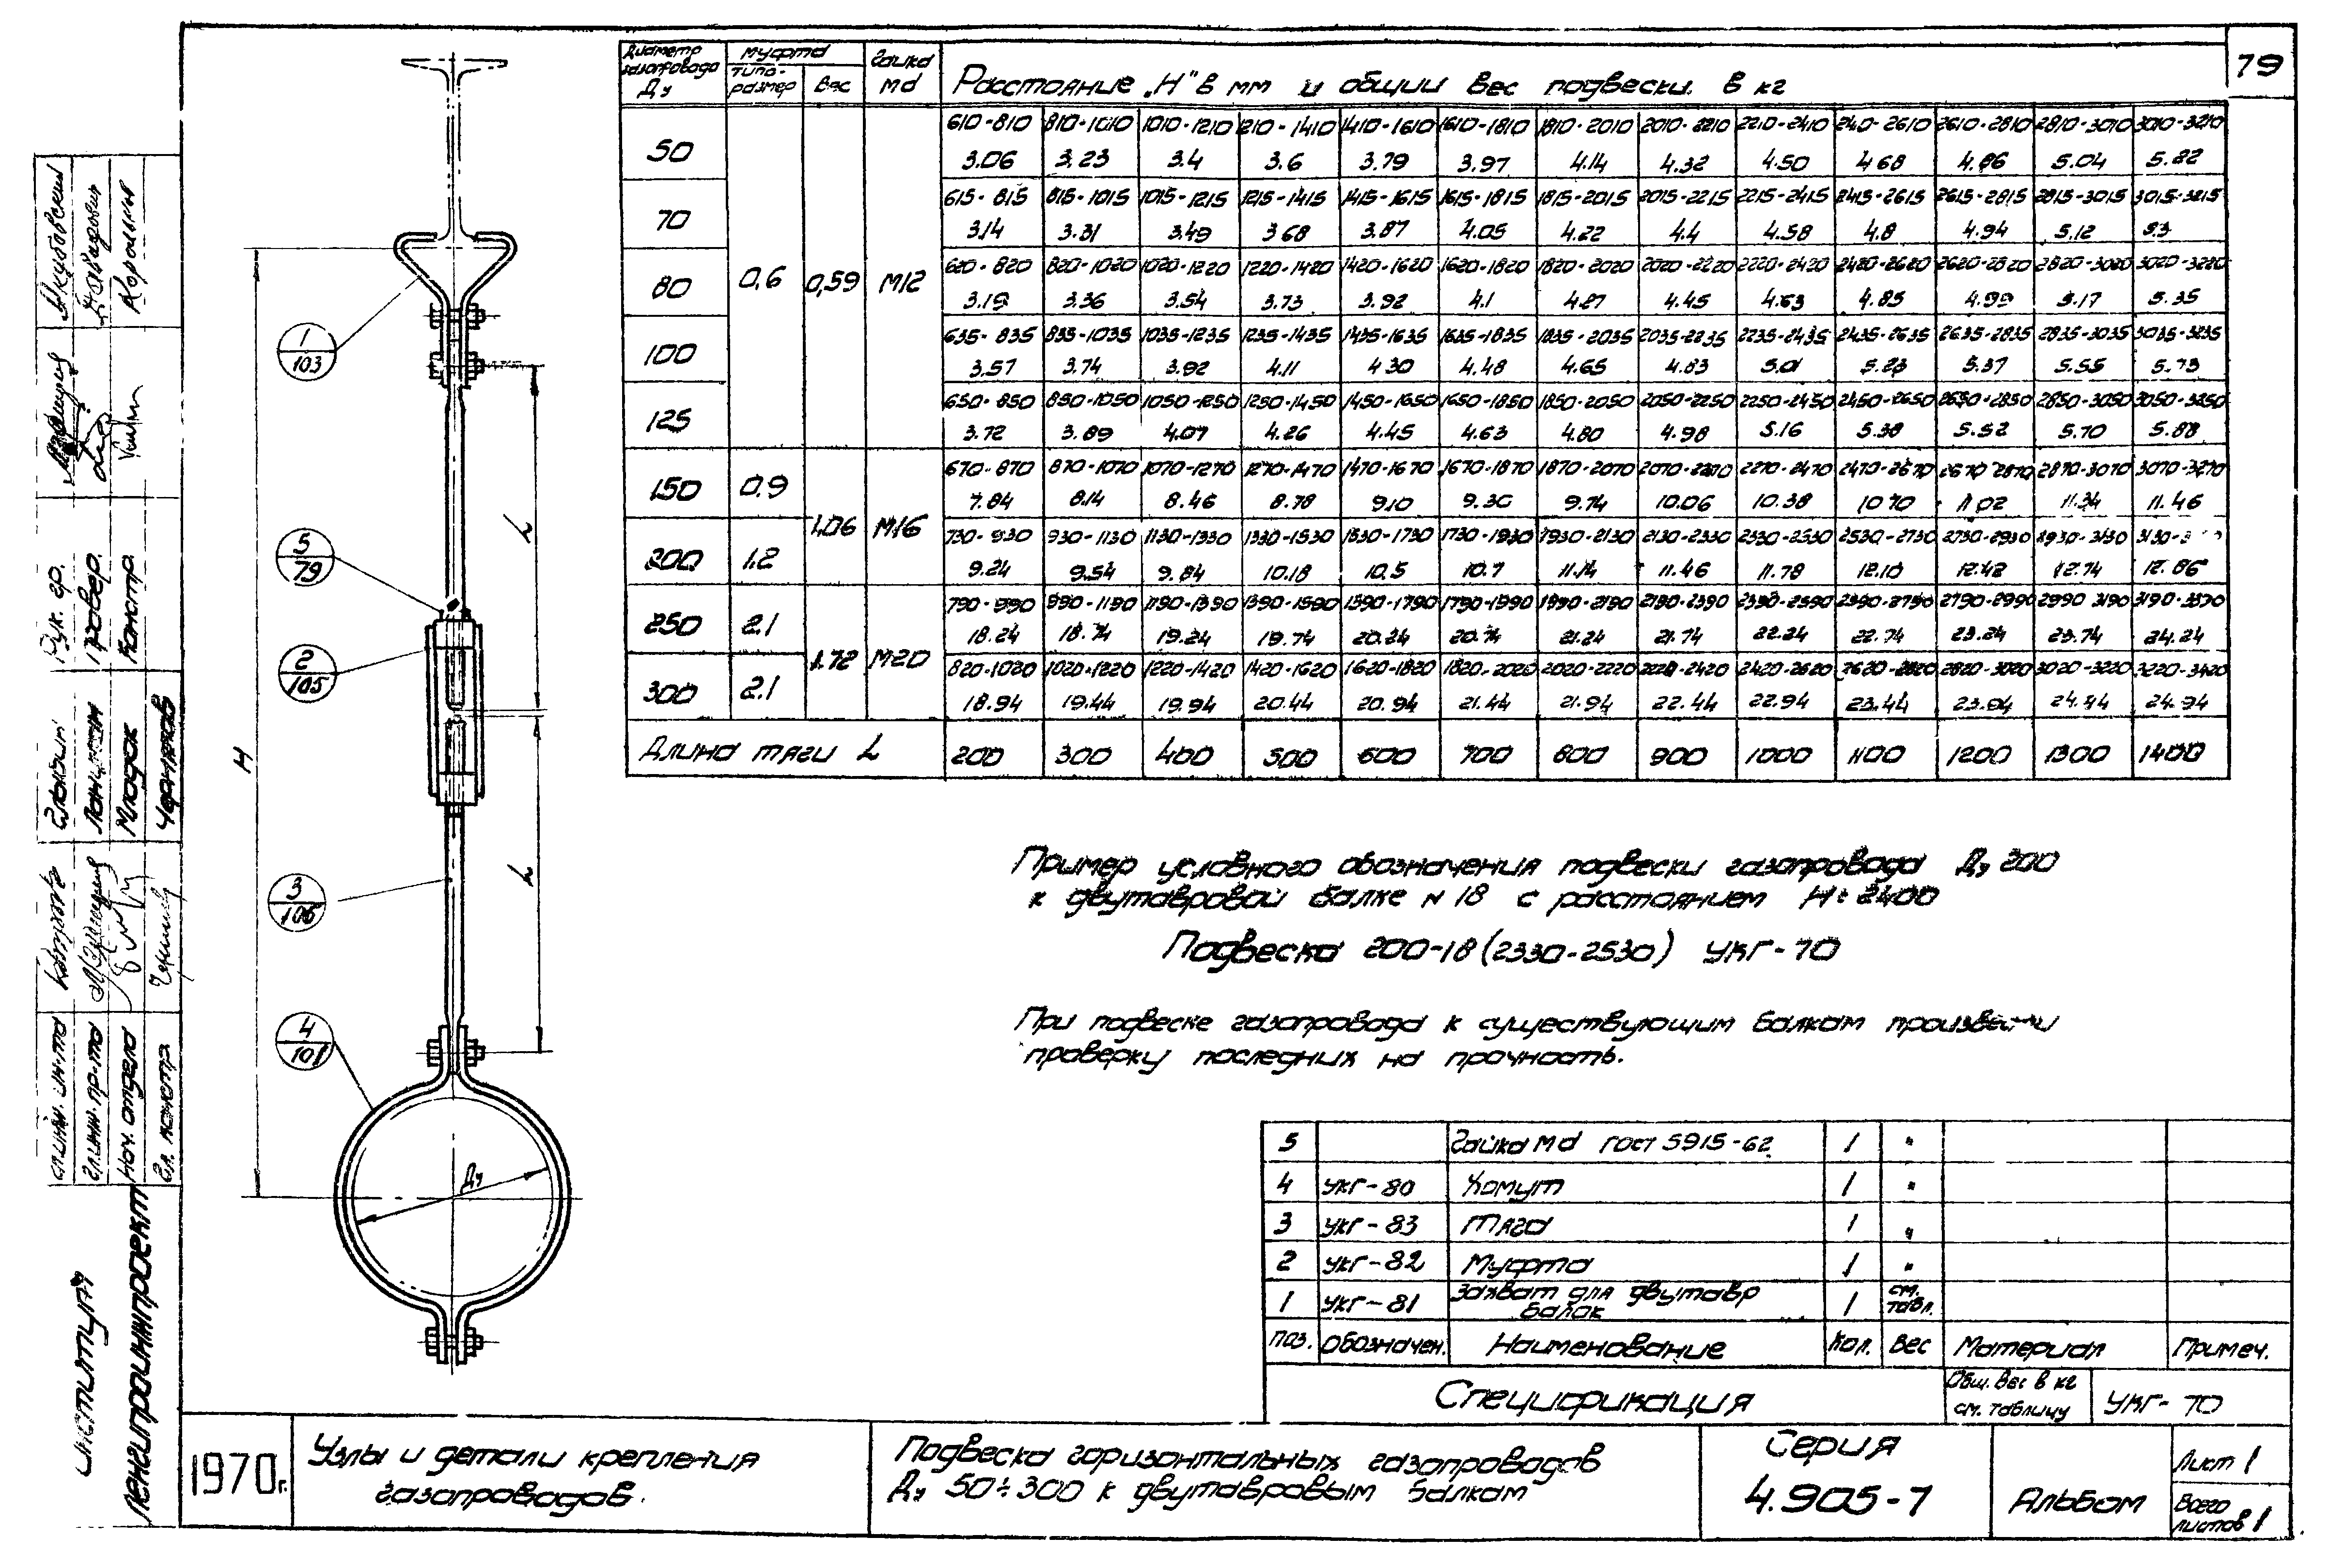 79
Диаметр газопровода Ду
муфта
типо-размер
вес
гайка Md
Расстояние „Н" в мм и общий вес подвески в кг
50
610-810 810-1010 1010-1210 1210-1410 1410-1610 1610-1810 1810-2010 2010-2210 2210-2410 2410-2610 2610-2810 2810-3010 3010-3210
3.06 3.23 3.4 3.6 3.79 3.97 4.14 4.32 4.50 4.68 4.86 5.04 5.22
70
615-815 815-1015 1015-1215 1215-1415 1415-1615 1615-1815 1815-2015 2015-2215 2215-2415 2415-2615 2615-2815 2815-3015 3015-3215
3.14 3.31 3.49 3.68 3.87 4.05 4.22 4.4 4.58 4.8 4.94 5.12 5.3
80 0,6 0,59 М12
620-820 820-1020 1020-1220 1220-1420 1420-1620 1620-1820 1820-2020 2020-2220 2220-2420 2420-2620 2620-2820 2820-3020 3020-3220
3.19 3.36 3.54 3.73 3.92 4.1 4.27 4.45 4.63 4.85 4.99 5.17 5.35
100
635-835 835-1035 1035-1235 1235-1435 1435-1635 1635-1835 1835-2035 2035-2235 2235-2435 2435-2635 2635-2835 2835-3035 3035-3235
3.57 3.74 3.92 4.11 4.30 4.48 4.65 4.83 5.01 5.23 5.37 5.55 5.73
125
650-850 850-1050 1050-1250 1250-1450 1450-1650 1650-1850 1850-2050 2050-2250 2250-2450 2450-2650 2650-2850 2850-3050 3050-3250
3.72 3.89 4.07 4.26 4.45 4.63 4.80 4.98 5.16 5.38 5.52 5.70 5.88
150 0.9
670-870 870-1070 1070-1270 1270-1470 1470-1670 1670-1870 1870-2070 2070-2270 2270-2470 2470-2670 2670-2870 2870-3070 3070-3270
7.84 8.14 8.46 8.78 9.10 9.30 9.74 10.06 10.38 10.70 11.02 11.34 11.46
1.06 М16
200 1.2
730-930 930-1130 1130-1330 1330-1530 1530-1730 1730-1930 1930-2130 2130-2330 2330-2530 2530-2730 2730-2930 2930-3130
9.24 9.54 9.84 10.18 10.5 10.7 11.14 11.46 11.78 12.10 12.42 12.74 12.86
250 2.1
790-990 990-1190 1190-1390 1390-1590 1590-1790 1790-1990 1990-2190 2190-2390 2390-2590 2590-2790 2790-2990 2990-3190 3190-3390
18.24 18.74 19.24 19.74 20.24 20.74 21.24 21.74 22.24 22.74 23.24 23.74 24.24
1.72 М20
300 2.1
820-1020 1020-1220 1220-1420 1420-1620 1620-1820 1820-2020 2020-2220 2220-2420 2420-2620 2620-2820 2820-3020 3020-3220 3220-3420
18.94 19.44 19.94 20.44 20.94 21.44 21.94 22.44 22.94 23.44 23.94 24.44 24.94
Длина тяги L 200 300 400 500 600 700 800 900 1000 1100 1200 1300 1400
1/103
5/79
2/105
3/106
4/101
H
L
L
Ду
Пример условного обозначения подвески газопровода Ду 200
к двутавровой балке N 18 с расстоянием Н=2400
Подвеска 200-18 (2330-2530) УКГ-70
При подвеске газопровода к существующим балкам произвести
проверку последних на прочность.
5 Гайка Md ГОСТ 5915-62 1 "
4 УКГ-80 Хомут 1 "
3 УКГ-83 Тяга 1 "
2 УКГ-82 Муфта 1 "
1 УКГ-81 Захват для двутавр балок 1 см. табл.
поз. Обозначен. Наименование Кол. Вес Материал Примеч.
Спецификация
Общ. вес в кг см. таблицу
УКГ-70
1970г.
Узлы и детали крепления
газопроводов.
Подвеска горизонтальных газопроводов
Ду 50÷300 к двутавровым балкам
Серия
4.905-7
Альбом
Лист 1
Всего листов 1
институт
Ленгипроинжпроект
Гл. инж. ин-та
Гл. инж. пр-та
Нач. отдела
Гл. констр
Млодок
Рук. гр.
Провер.
Констр.
Якубовский
Давидович